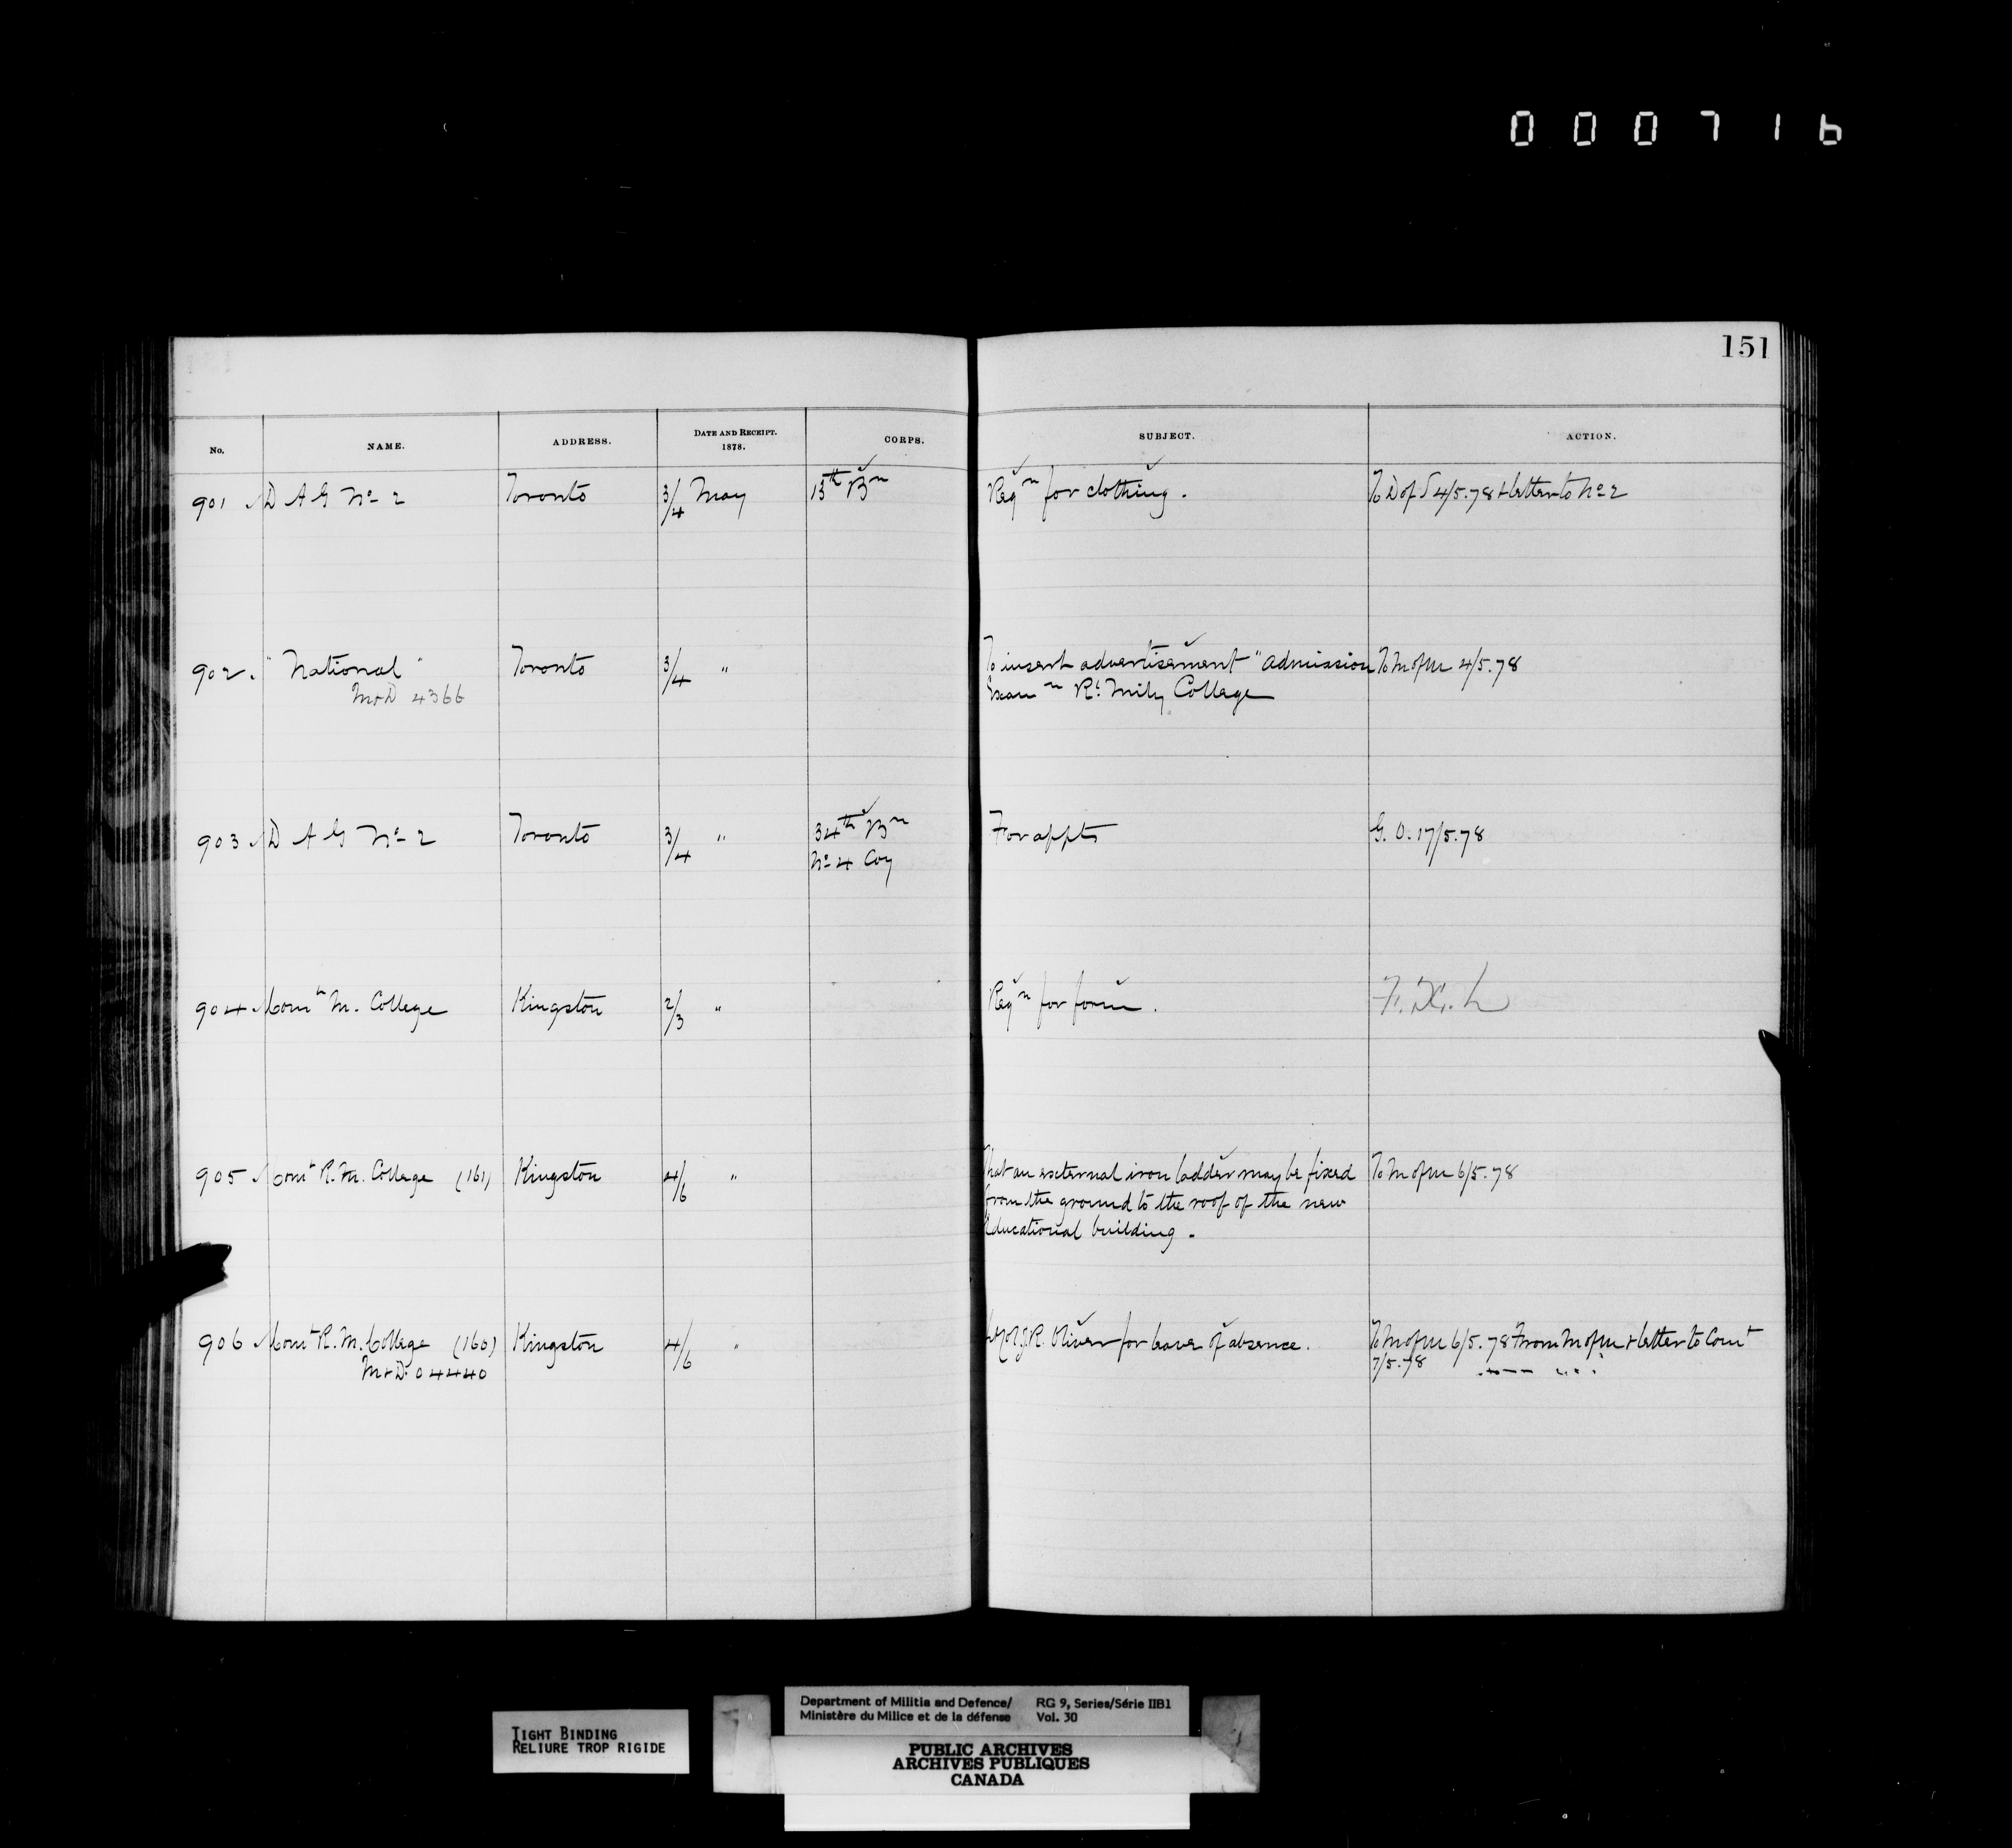 000716
151
No. NAME. ADDRESS. DATE AND RECEIPT. 1878. CORPS. SUBJECT. ACTION.
901 D A G No 2 Toronto 3/4 May 13th Bn Reqn for clothing. To D of S 4/5.78 + letter to No 2
902. "National" Toronto 3/4 " To insert advertisement "Admission To M of M 4/5.78
M+D 4366 Exam n Rl. Mily College
903 D A G No 2 Toronto 3/4 " 34th Bn For appts G. O. 17/5.78
No 4 Coy
904 Comt M. College Kingston 2/3 " Reqn for form.
905 Comt R. M. College (161) Kingston 4/6 " That an external iron ladder may be fixed To M of M 6/5.78
from the ground to the roof of the new
Educational building.
906 Comt R. M. College (160) Kingston 4/6 " R. Oliver for leave of absence. To M of M 6/5.78 From M of M + letter to Comt
M+D. 04440 7/5.78
TIGHT BINDING
RELIURE TROP RIGIDE
Department of Militia and Defence/ RG 9, Series/Série IIB1
Ministère du Milice et de la défense Vol. 30
PUBLIC ARCHIVES
ARCHIVES PUBLIQUES
CANADA